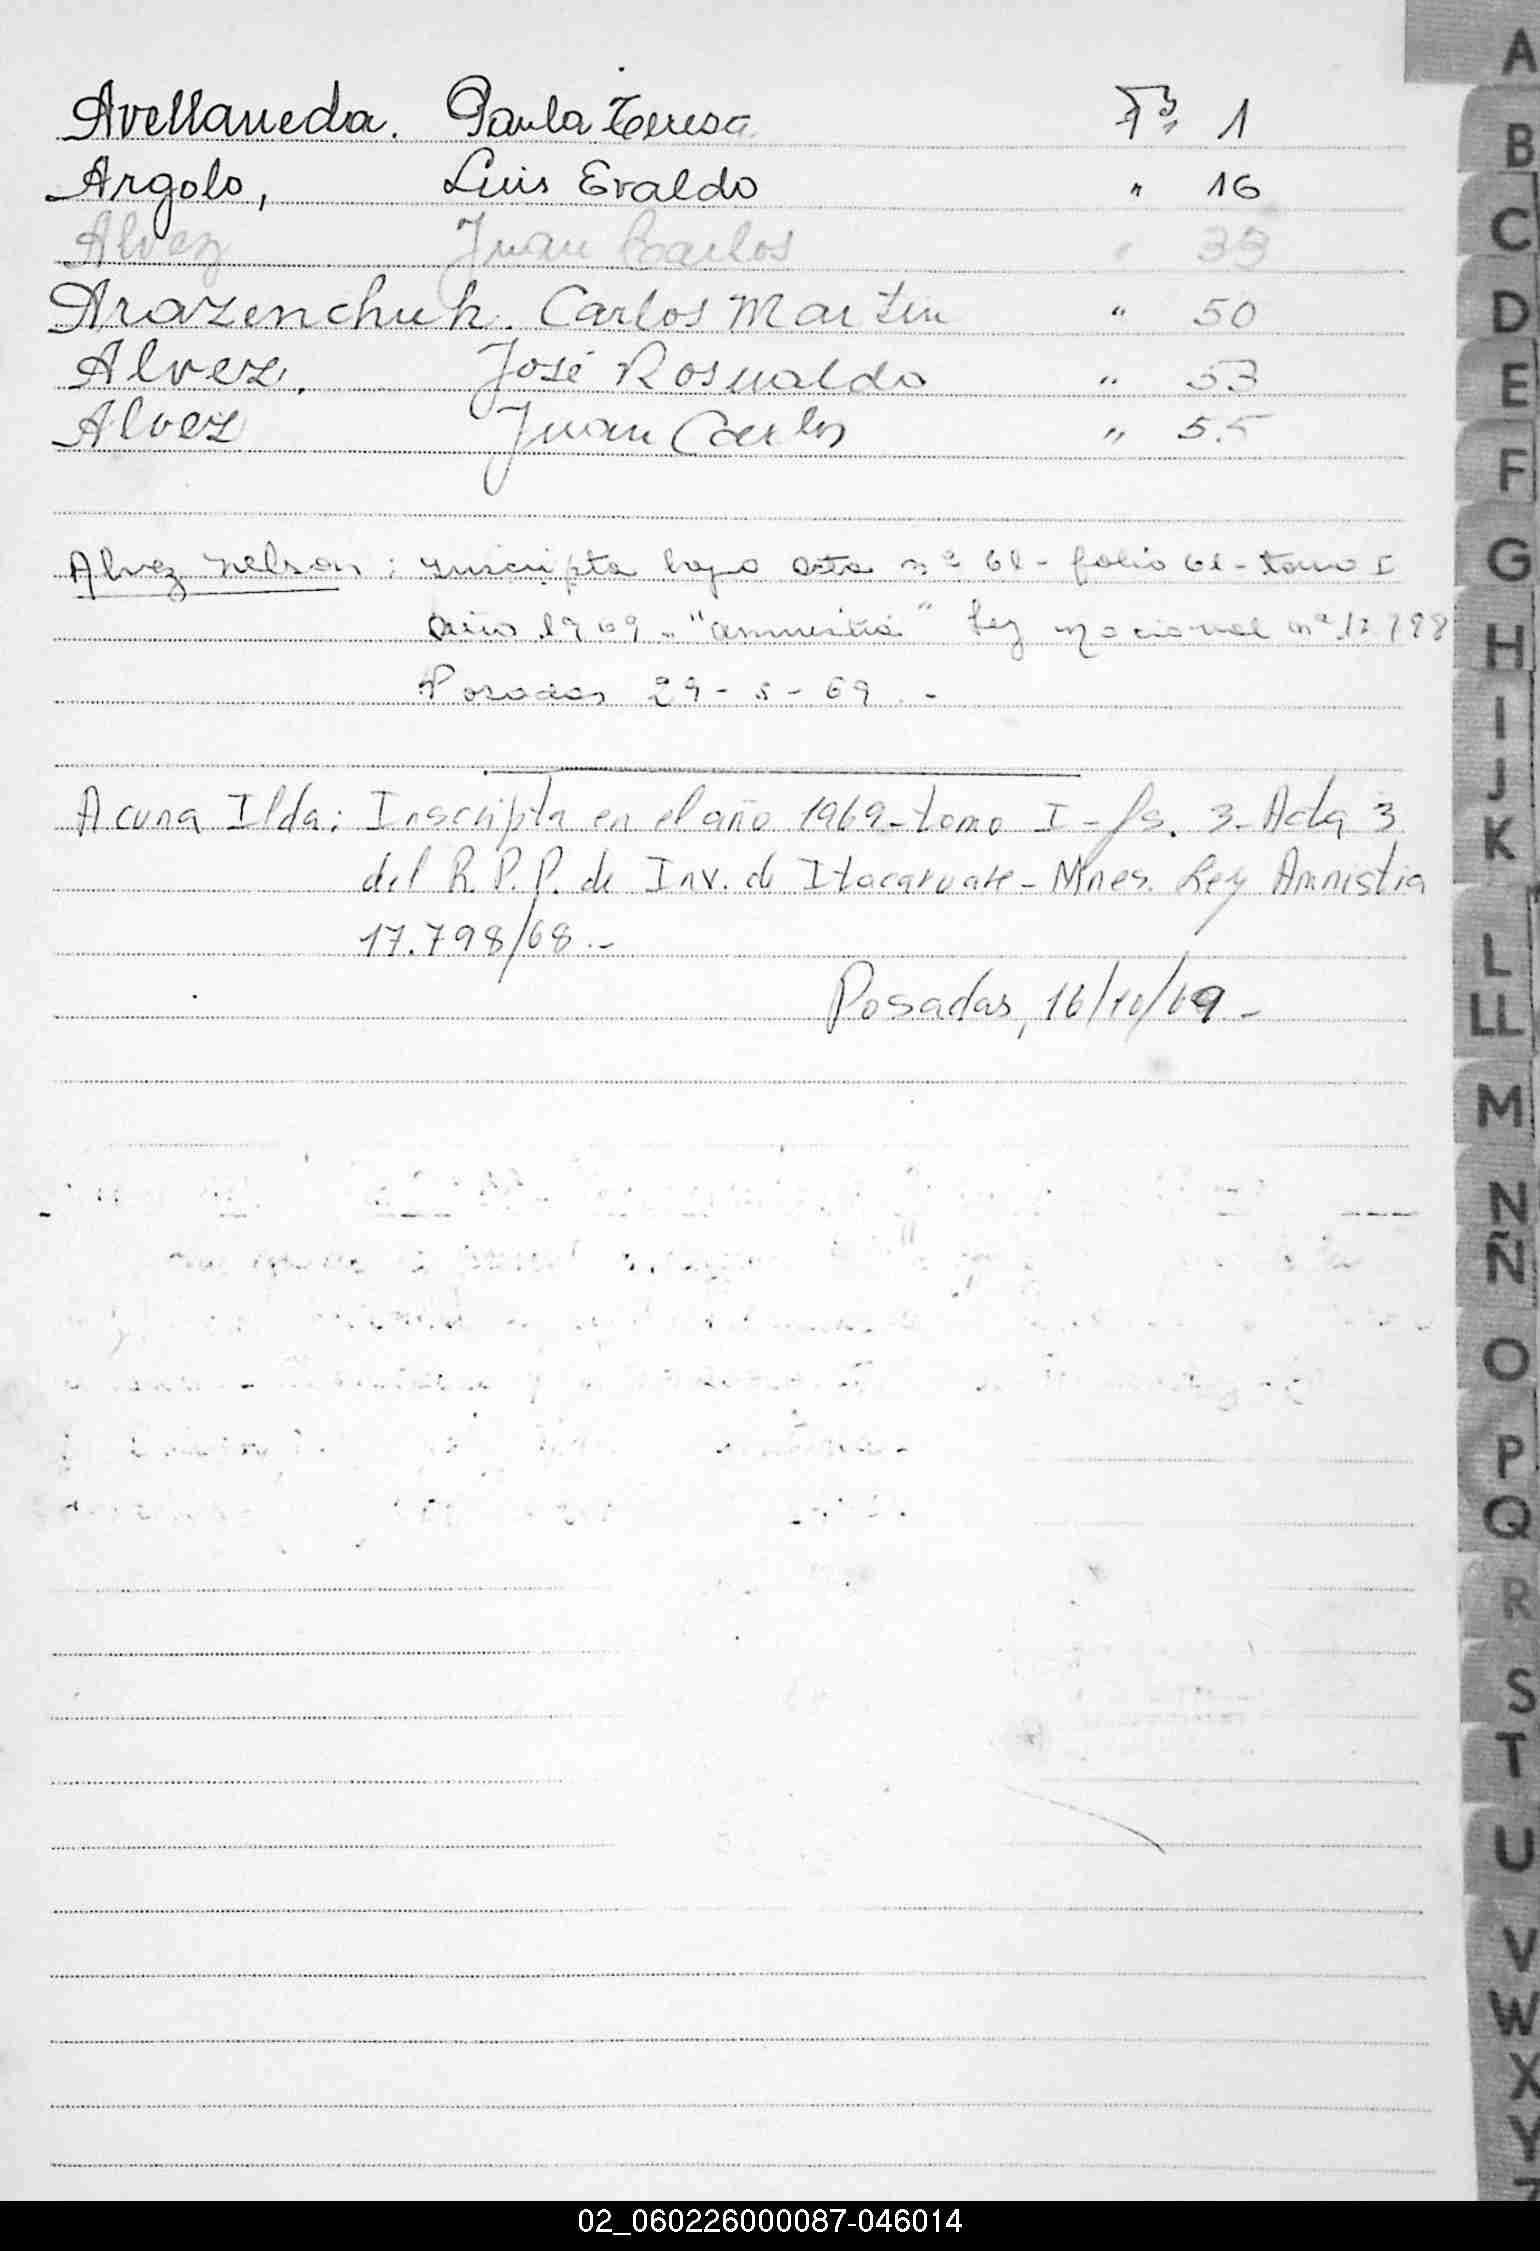 Avellaneda. Paula Teresa Fs. 1
Argolo, Luis Evaldo " 16
Alvez Juan Carlos " 33
Arazenchuk. Carlos Martin " 50
Alvez. José Rosualdo " 53
Alvez Juan Carlos " 55
Alvez Nelson: inscripta bajo acta nº 61 - folio 61 - tomo I
año 1969 - "amnistia" Ley nacional nº 17.798
Posadas 29-5-69.-
Acuna Ilda: Inscripta en el año 1969 - tomo I - fs. 3 - Acta 3
del R.P.P. de Inv. de Itacaruare - Mnes. Ley Amnistia
17.798/68.-
Posadas, 16/10/69 -
A
B
C
D
E
F
G
H
I
J
K
L
LL
M
N
Ñ
O
P
Q
R
S
T
U
V
W
X
Y
Z
02_060226000087-046014